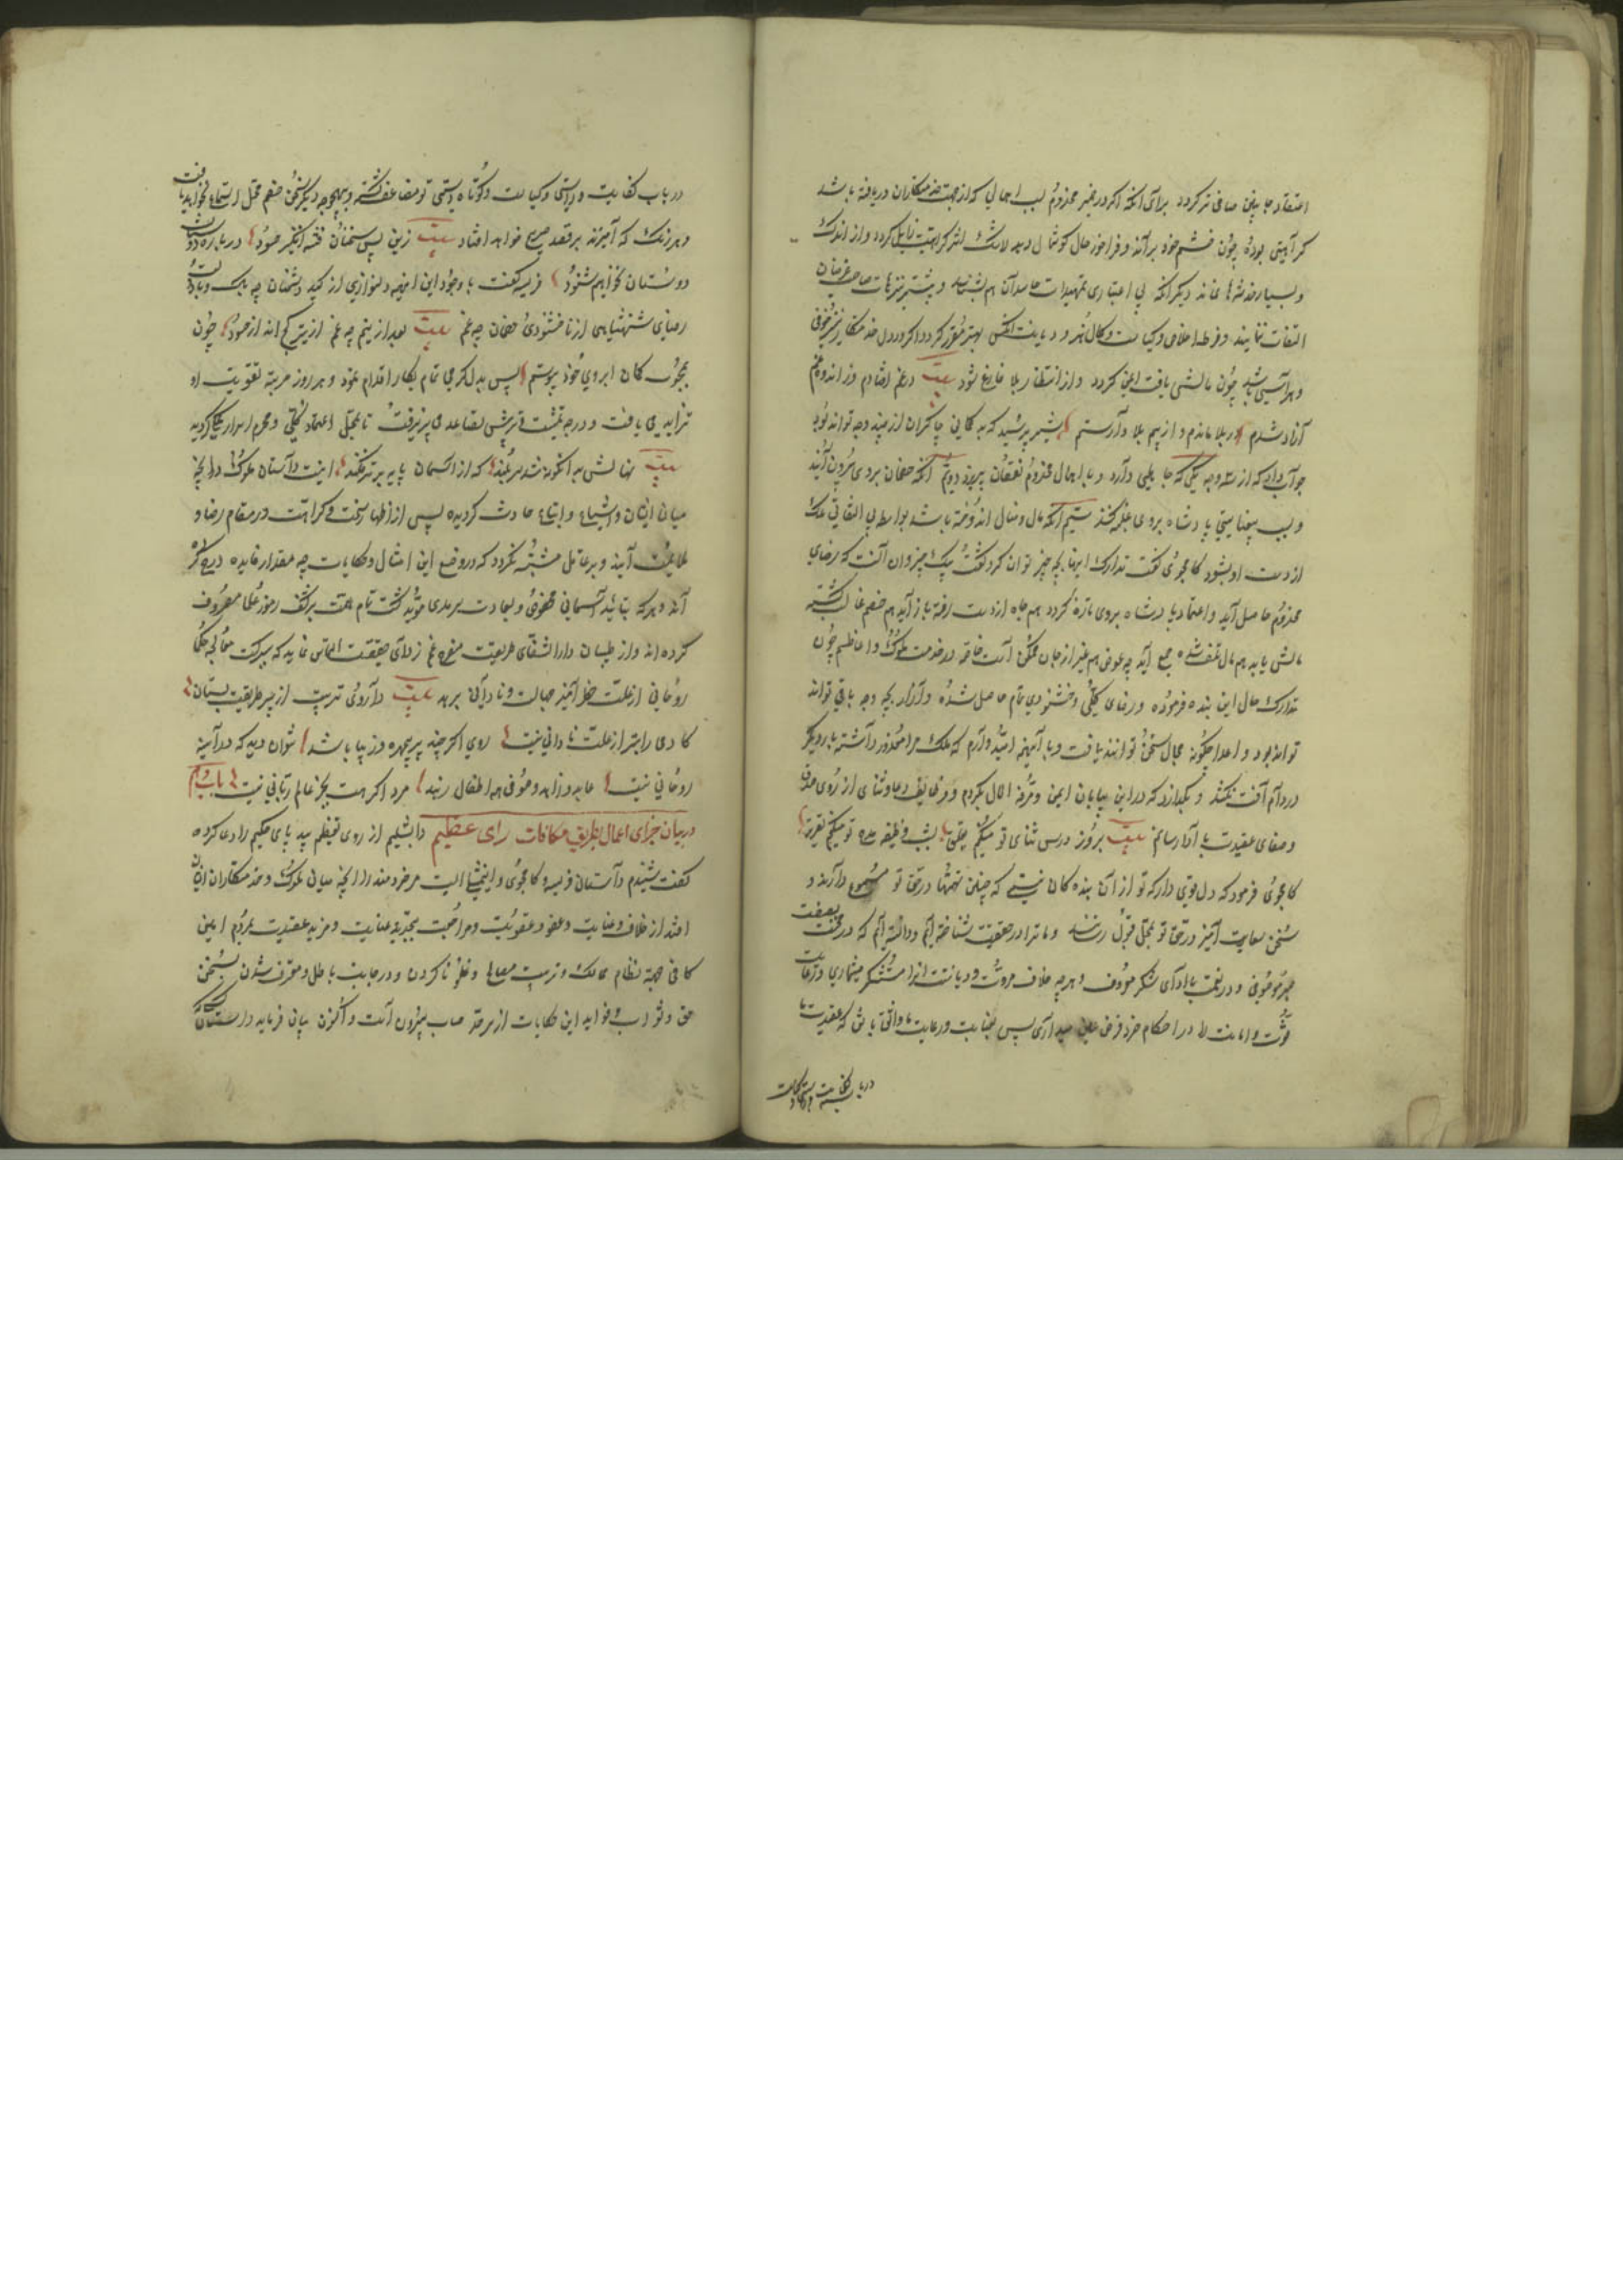 اعتقاد جانبین صافی تر گردد برای آنکه اگر در ضمیر مخدوم بسبب اهمالی که از جهت خدمتکاران دریافته باشد
کراهیتی بوده چون خشم خود براند و فراخور حال گوشمال دهد لاشک اثر کراهیت زایل گردد و از اندک
و بسیار خدشها نماند دیگر آنکه بی اعتباری تمهیدات حاسدان هم بشناسد و بیشتر بترهات صاحب غرضان
التفات ننماید و فرط اخلاص و کیاست و کمال هنر و دیانت آنکس بهتر مقرر گردد دیگر در دل خدمتکار نیز خوفی
و هراسی باشد چون مالشی یافت ایمن گردد و از انتظار بلا فارغ شود بیت در غم افتادم و از اندوه غم
آزاد شدم در بلا ماندم و از بیم بلا وارستم شیر پرسید که بدگمانی چاکران از چند وجه تواند بود
جواب داد که از سه وجه یکی که جاهی دارد و باهمال مخدوم نقصان پذیرد دویم آنکه خصمان بر وی بیرون آیند
و بسبب بی عنایتی پادشاه بر وی غلبه کنند سیم آنکه مال و منال اندوخته باشد بواسطه بی التفاتی ملک
از دست او بشود کامجوی گفت تدارک اینها بچه چیز توان کرد گفت بیک چیز و آن آنست که رضای
مخدوم حاصل آید و اعتماد پادشاه بر وی تازه گردد هم جاه از دست رفته باز آید هم خصم غالب گشته
مالش یابد هم مال تلف شده جمع آید چه عوض همه چیز از جان ممکن است خاصه در خدمت ملوک و اعاظم چون
تدارک حال این بنده فرموده و رضای ملکی و خشنودی تمام حاصل شده و آزار بچه وجه باقی تواند
تواند بود و اعدا چگونه مجال سخن توانند یافت و با اینهمه امید دارم که ملک مرا معذور داشته بار دیگر
در دام آفت نکشد و بگذارد که در این بیابان ایمن و مرفه الحال بگردم و وظایف دعا و ثنای از روی صدق
و صفای عقیدت بادا رسانم بیت بروز درس ثنای تو میکنم تلقی بشب وظیفه مدح تو میکنم تقریر
کامجوی فرمود که دل قوی دار که تو از آن بنده گان نیستی که چنین تهمتها در حق تو مسموع دارند و
سخن سعایت آمیز در حق تو بمحل قبول رسد و ما ترا در حقیقت شناخته ایم و دانسته ایم که در محنت بصفت
صبر موصوفی و در نعمت بادای شکر معروف و هر چه خلاف مروت و دیانت است آنرا مستنکر میشماری و رعایت
فتوت و امانت را در احکام خرد فرض عین میداری پس بعنایت و رعایت ما واثق باش که عقیدت ما
در باب کفایت و راستی و کیاست
در باب کفایت و راستی و کیاست و کوتاه دستی تو مضاعف گشته و بهیچوجه دیگر سخن خصم محل استماع نخواهد یافت
و هر رنگ که آمیزند بر قصد صریح خواهد افتاد بیت زین پس سخنان فتنه انگیز حسود در باره دوستان
دوستان نخواهیم شنود فریسه گفت با وجود این همه دلنوازی از کید دشمنان چه باک و با وجود
رضای شهنشاهی از ناخشنودی خصمان چه غم بیت بعد ازینم چه غم از تیر کج انداز حسود چون
بمحبوب کمان ابروی خود پیوستم پس بدلگرمی تمام بکار اقدام نمود و هر روز مرتبه تقویت او
تزاید می یافت و درجه تمشیت و ترقیش تصاعد می پذیرفت تا بمحل اعتماد کلی و محرم اسرار یکی گردید
بیت نهالش بدانگونه شد سربلند که از آسمان پایه برتر فکند اینست داستان ملوک در آنچه
میان ایشان و اشیاع و اتباع حادث گردیده پس از اظهار سخط و کراهت در مقام رضا و
ملایمت آیند و بر عاقل مشتبه نگردد که در وضع این امثال و حکایات چه مقدار فایده درج کرده
اند و هر که بتائید آسمانی محفوظ و بسعادت سرمدی مؤید گشت تمام همت بر کشف رموز علما مصروف
کرده اند و از طبیبان دارالشفای طریقت مفرح غم زدای حقیقت التماس نماید که ببرکت معالجه حکما
روحانی از علت خطر آمیز جهالت و نادانی برهد بیت داروی تربیت از پیر طریقت بستان
کادمی را بتر از علت نادانی نیست روی اگر چند پریچهره و زیبا باشد نتوان دید که در آینه
روحانی نیست عابد و زاهد و صوفی همه اطفال رهند مرد اگر هست بجز عالم ربانی نیست باب دهم
در بیان جزای اعمال بطریق مکافات رای عظیم دابشلیم از روی تعظیم بیدپای حکیم را دعا کرده
گفت شنیدم داستان فریسه و کامجوی و این مثالیست مر خردمند را در آنچه میان ملوک و خدمتکاران ایشان
افتد از خلاف و خیانت و عفو و عقوبت و مراجعت بتجدید عنایت و مزید عقیدت بمردم امین
کافی جهة نظام ممالک و ترتیب مصالح و غلو ناکردن و در جانب باطل و معترف شدن بسخن
حق و ثواب و فواید این حکایات از سرحد حساب بیرون است و اکنون بیان فرماید داستان